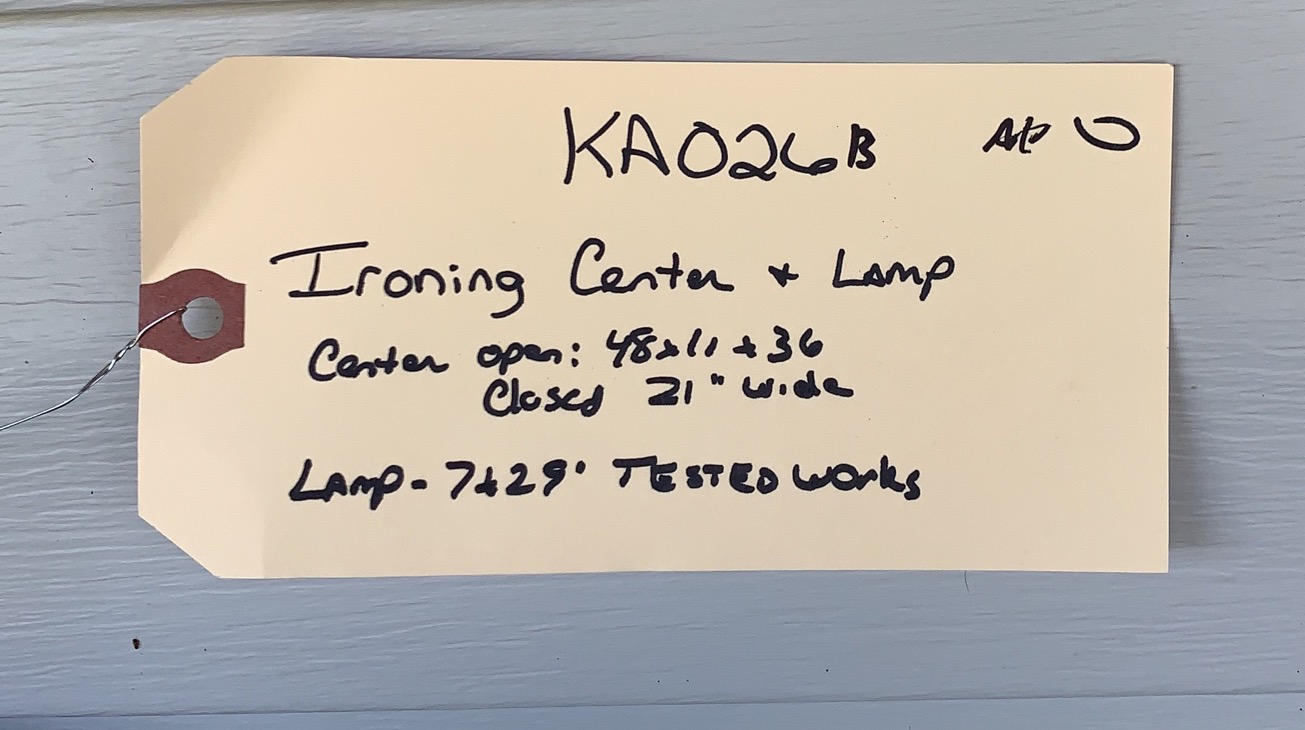 KA026B
Ironing Center + Lamp
Center open: 48x11x36
Closed 21" wide
Lamp - 7x29" TESTED Works